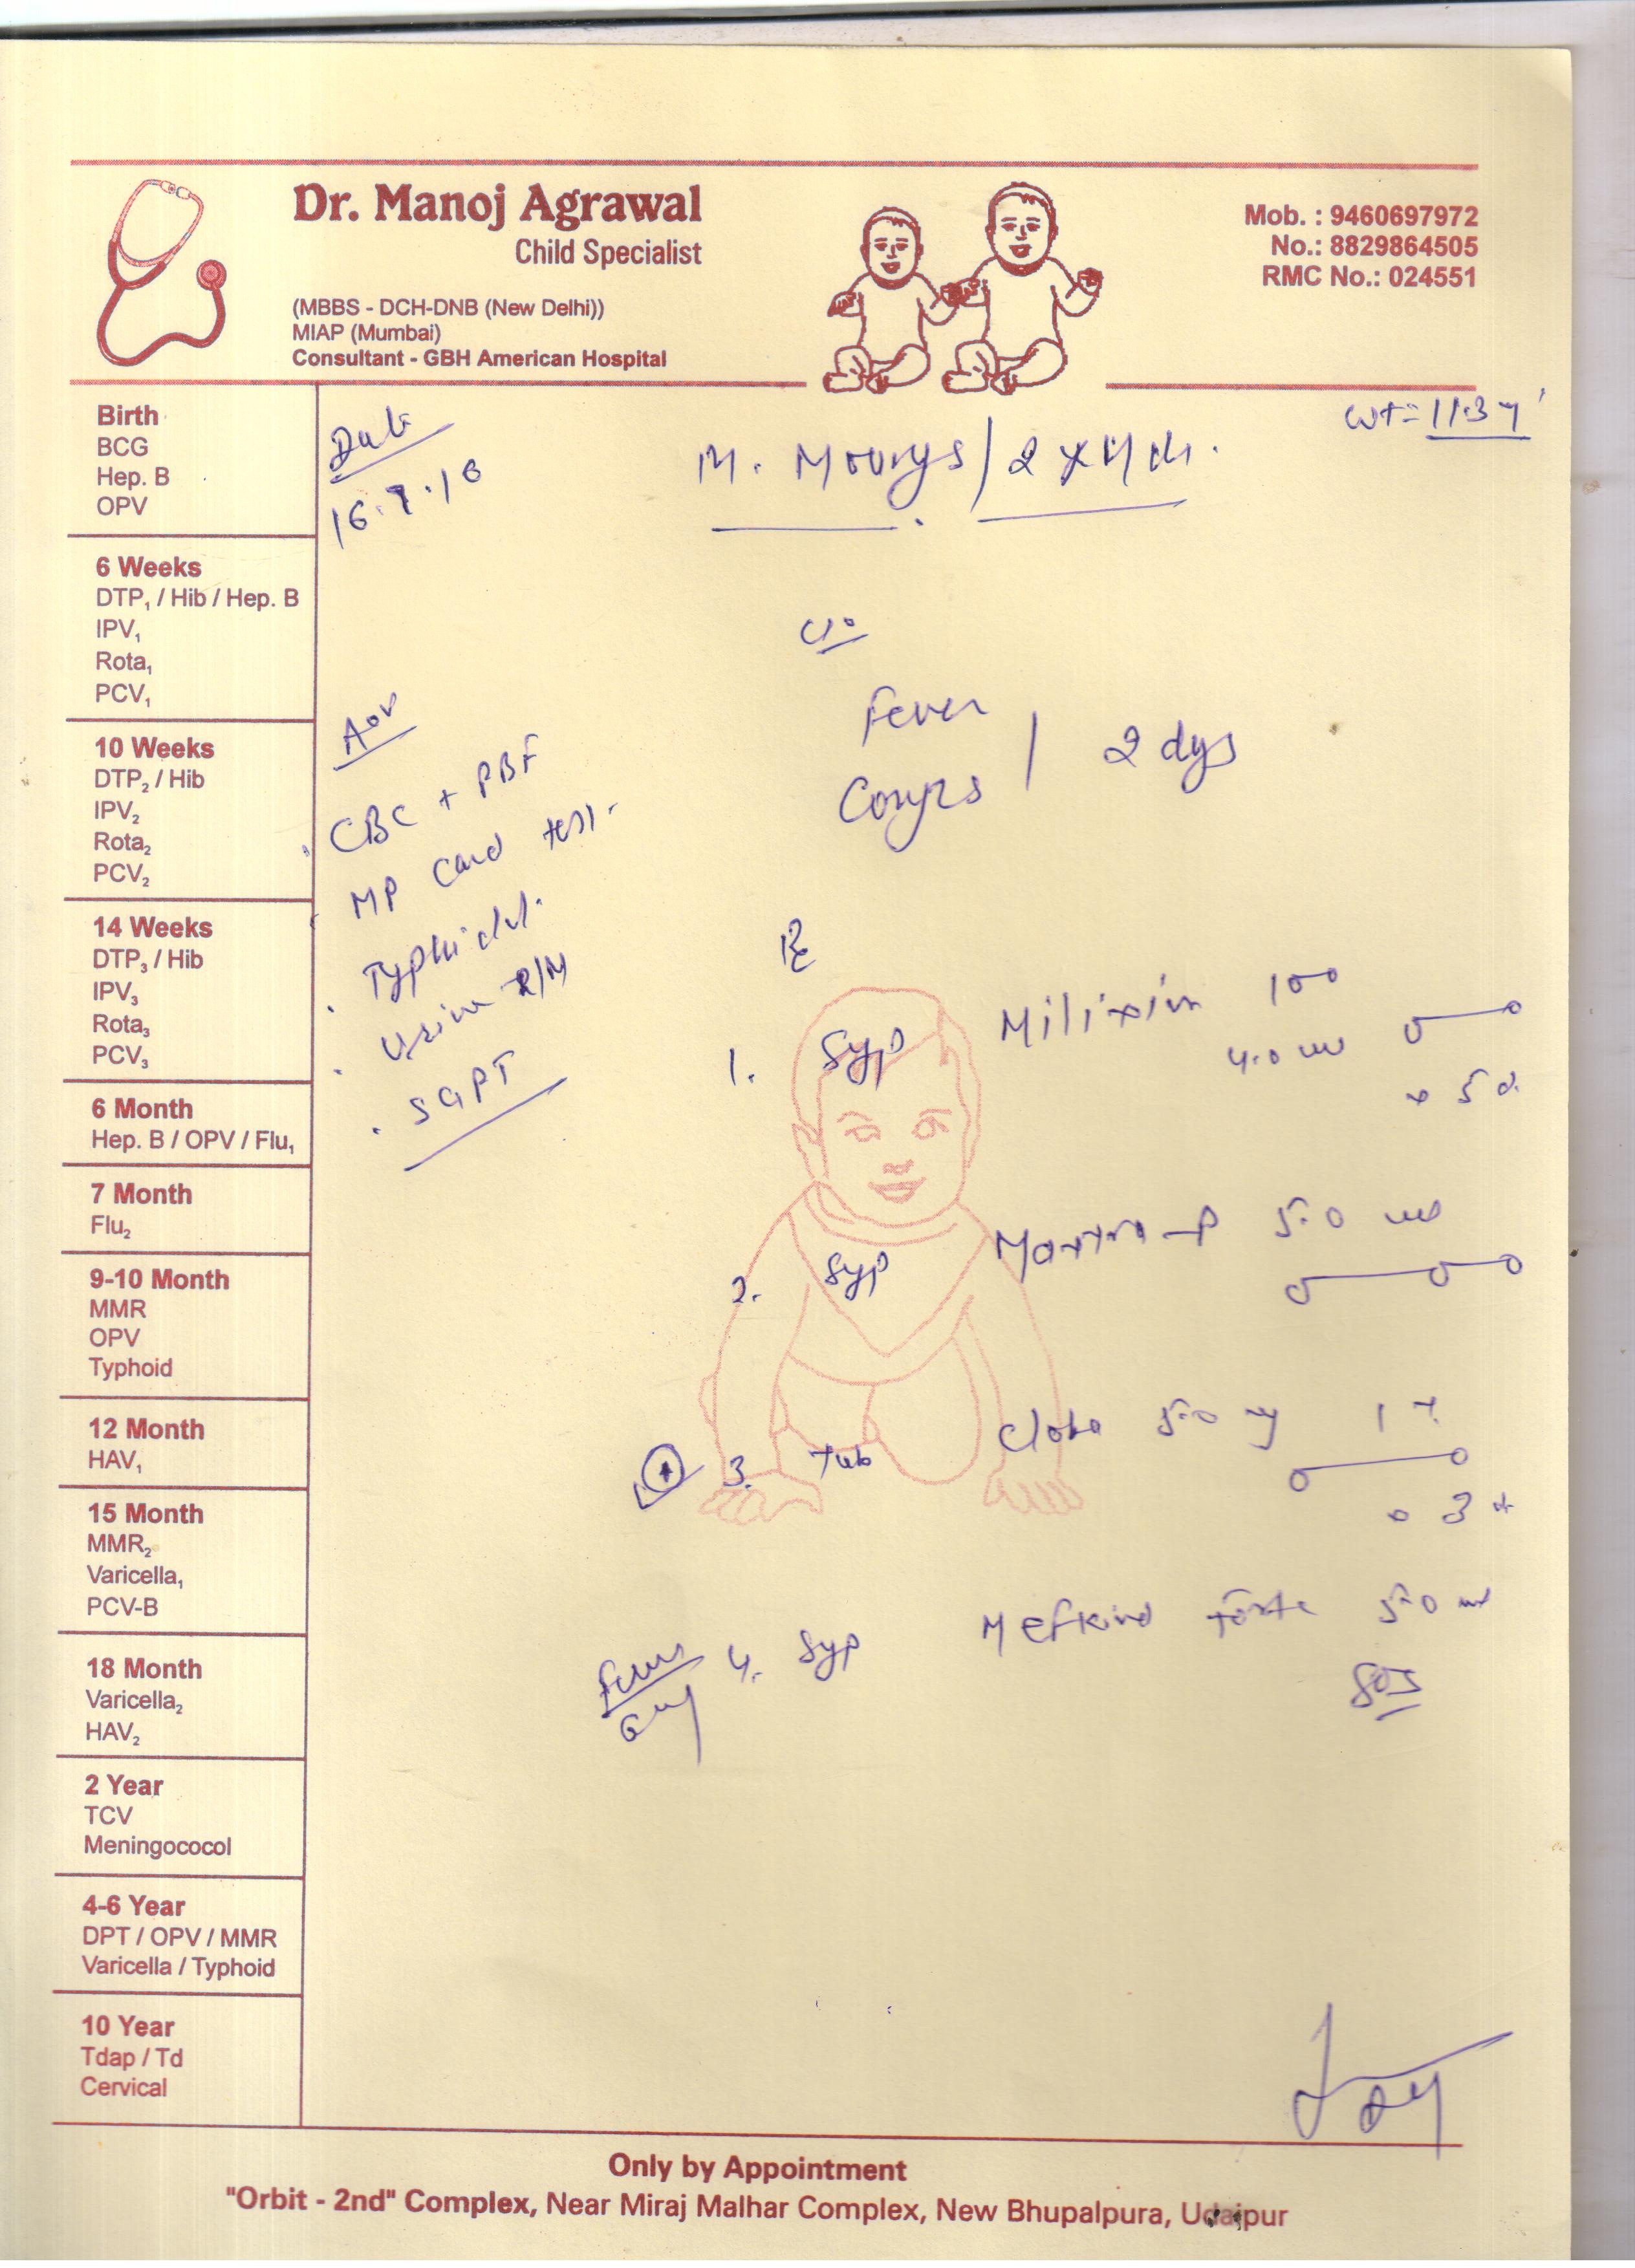 Dr. Manoj Agrawal
Child Specialist
(MBBS - DCH-DNB (New Delhi))
MIAP (Mumbai)
Consultant - GBH American Hospital
Mob. : 9460697972
No.: 8829864505
RMC No.: 024551
Birth
BCG
Hep. B
OPV
6 Weeks
DTP₁ / Hib / Hep. B
IPV₁
Rota₁
PCV₁
10 Weeks
DTP₂ / Hib
IPV₂
Rota₂
PCV₂
14 Weeks
DTP₃ / Hib
IPV₃
Rota₃
PCV₃
6 Month
Hep. B / OPV / Flu₁
7 Month
Flu₂
9-10 Month
MMR
OPV
Typhoid
12 Month
HAV₁
15 Month
MMR₂
Varicella₁
PCV-B
18 Month
Varicella₂
HAV₂
2 Year
TCV
Meningococol
4-6 Year
DPT / OPV / MMR
Varicella / Typhoid
10 Year
Tdap / Td
Cervical
Date
wt = 11.3
M.
c/o
Fever
2 dys
Adv
CBC + PBF
MP Card test
Typhidot
Urine R/M
SGPT
Rx
1. Syp Milixim 100
4.0 ml
x 5 d
2. Syp 5.0 ml
3. Tab
4. Syp Mefkind forte 5.0 ml
SOS
Only by Appointment
"Orbit - 2nd" Complex, Near Miraj Malhar Complex, New Bhupalpura, Udaipur